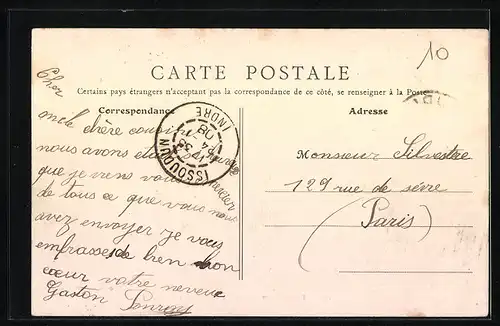 10
CARTE POSTALE
Certains pays étrangers n'acceptant pas la correspondance de ce côté, se renseigner à la Poste
Correspondance
Adresse
Cher
cousin
nous avons
que je viens vous remercier
de tous ce que vous nous
avez envoyer je vous
embrasse de bien bon
cœur votre neveue
Gaston
ISSOUDUN
INDRE
Monsieur Silvestre
129 rue de sèvre
(Paris)